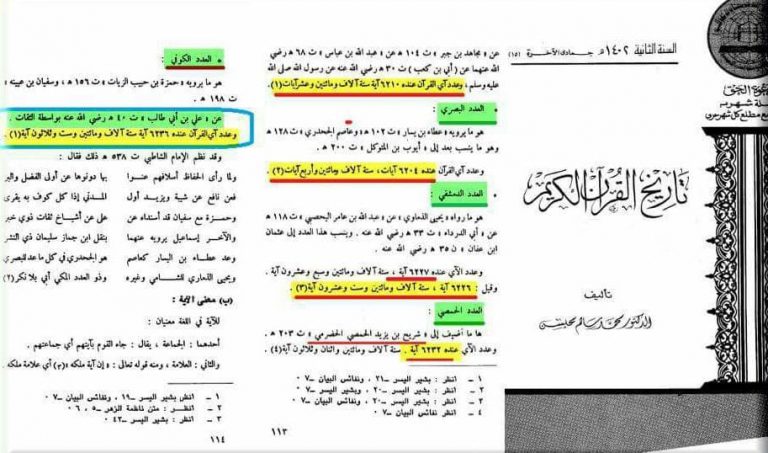 السنة الثانية ١٤٠٢ هـ جمادى الآخرة (١٥)
تاريخ القرآن الكريم
تأليف
الدكتور محمد سالم محيسن
عن « مجاهد بن جبر » ت ١٠٤ هـ عن « عبد الله بن عباس » ت ٦٨ هـ رضي الله
عنهما عن « أبي بن كعب » ت ٣٠ هـ رضي الله عنه عن رسول الله صلى الله
عليه وسلم ، وعدد آي القرآن عنده ٦٢١٠ ستة آلاف ومائتين وعشر آيات (١)
العدد البصري :
هو ما يرويه « عطاء بن يسار » ت ١٠٢ هـ و « عاصم الجحدري » ت ١٢٨ هـ
وهو ما ينسب بعد إلى « أيوب بن المتوكل » ت ٢٠٠ هـ .
وعدد آي القرآن عنده ٦٢٠٤ آيات ، ستة آلاف ومائتين وأربع آيات (٢)
العدد الدمشقي :
هو ما رواه « يحيى الذماري » عن « عبد الله بن عامر اليحصبي » ت ١١٨ هـ
عن « أبي الدرداء » ت ٣٣ هـ رضي الله عنه . وينسب هذا العدد إلى عثمان
ابن عفان » ن ٣٥ هـ رضي الله عنه .
وعدد الآي عنده ٦٢٢٧ آية ، ستة آلاف ومائتين وسبع وعشرون آية
وقيل : ٦٢٢٦ آية ، ستة آلاف ومائتين وست وعشرون آية (٣)
العدد الحمصي :
هو ما أضيف إلى « شريح بن يزيد الحمصي الحضرمي » ت ٢٠٣ هـ .
وعدد الآي عنده ٦٢٣٢ آية . ستة آلاف ومائتين واثنان وثلاثون آية (٤)
١ – أنظر : بشير اليسر –٢١ ، ونفائس البيان –٧
٢ – أنظر : بشير اليسر –٢٠ ، ونفائس البيان –٧
٣ – أنظر : بشير اليسر –٢٠ ، ونفائس البيان –٧
٤ – أنظر : نفائس البيان –٧
١١٣
العدد الكوفي :
هو ما يرويه « حمزة بن حبيب الزيات » ت ١٥٦ هـ ، وسفيان بن عيينة »
ت ١٩٨ هـ .
عن « علي بن أبي طالب » ت ٤٠ هـ رضي الله عنه بواسطة الثقات .
وعدد آي القرآن عنده ٦٢٣٦ آية ستة آلاف ومائتين وست وثلاثون آية (١)
وقد نظم الإمام الشاطبي ت ٥٣٨ هـ ذلك فقال :
ولما رأى الحفاظ أسلافهم عنوا بها دونوها عن أولى الفضل والبر
فعن نافع عن شيبة ويزيد أول المدني إذا كل كوف به يقرى
وحمزة مع سفيان قد أسنداه عن علي عن أشياخ ثقات ذوي خبر
والآخر إسماعيل يرويه عنهما بنقل ابن جماز سليمان ذي النشر
عد عطاء بن اليسار كعاصم هو الجحدري في كل ما عد للبصري
ويحيى الذماري للشامي وغيره وذو العدد المكي أبي بلا نكر (٢)
(ب) معنى الآية :
للآية في اللغة معنيان :
أحدهما : الجماعة ، يقال : جاء القوم بآيتهم أي جماعتهم .
والثاني : العلامة ، ومنه قوله تعالى : « إن آية ملكه » أي علامة
١ – أنظر : بشير اليسر –١٩ ، ونفائس البيان –٧
٢ – أنظر : متن ناظمة الزهر –٥ ، ٦
٣ – أنظر : بشير اليسر –٤٢
١١٤